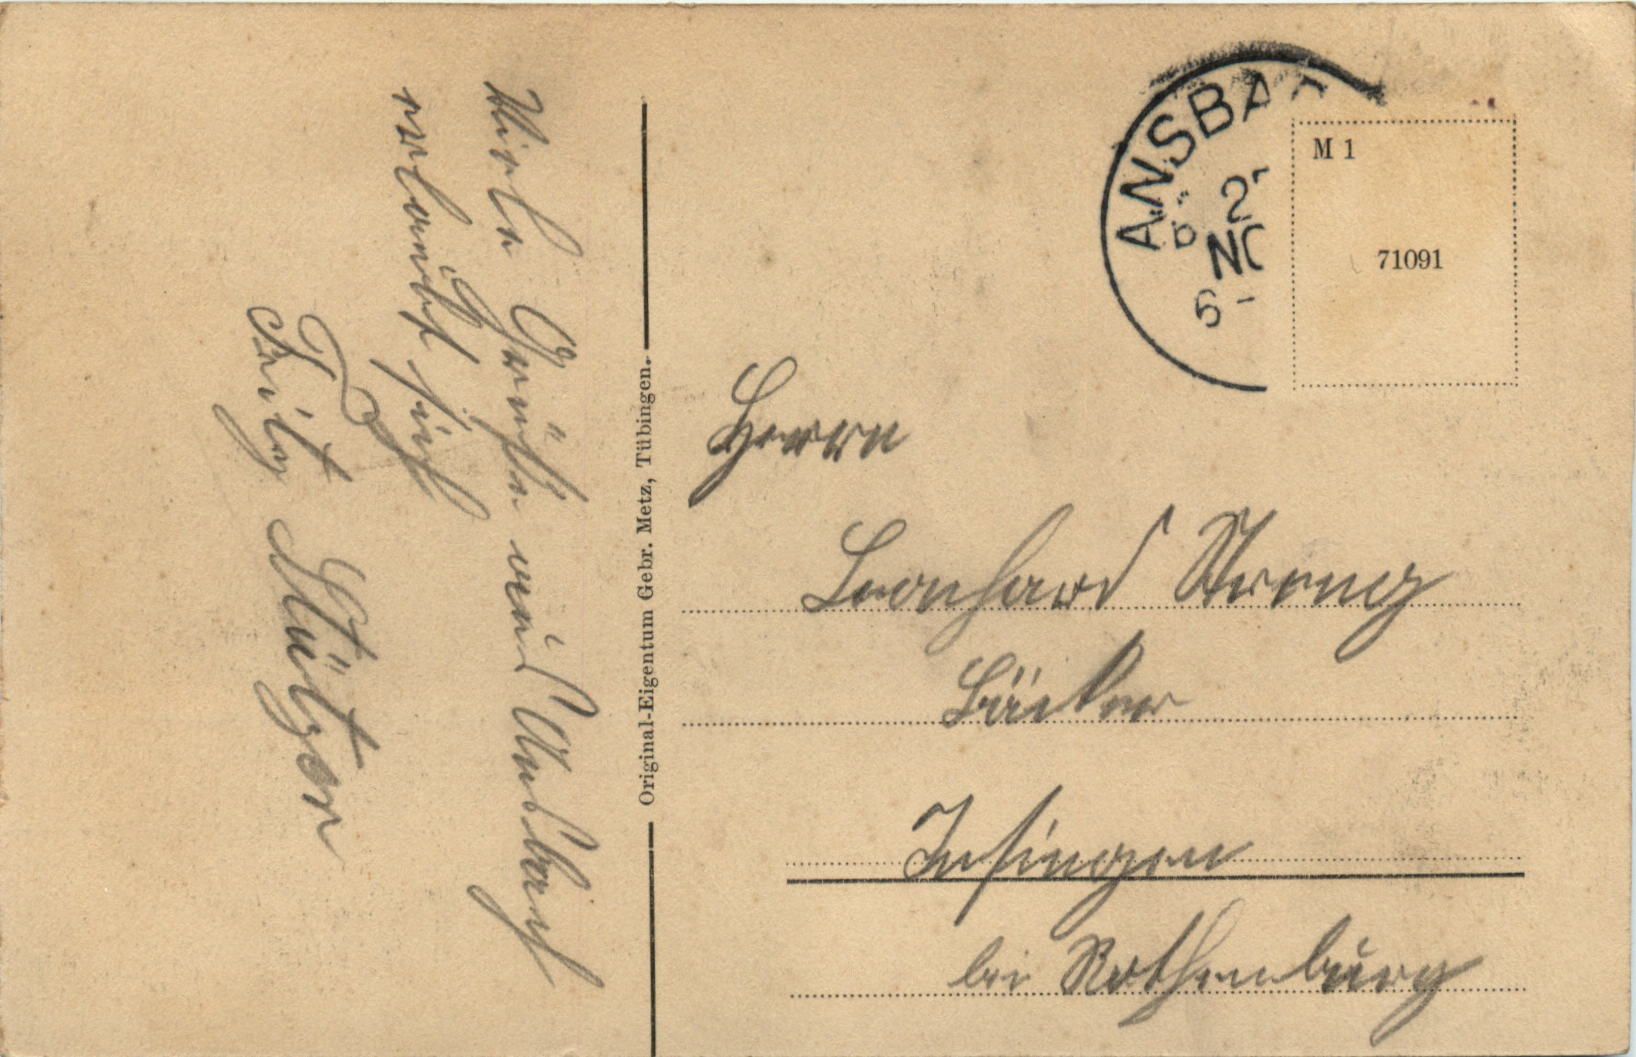 Viele Grüße aus Ansbach
erlaubt sich
Fritz Stützer
Original-Eigentum Gebr. Metz, Tübingen.
ANSBAC
2
NO
6
M 1
71091
Herrn
Leonhard Streng
Bäcker
Insingen
bei Rothenburg